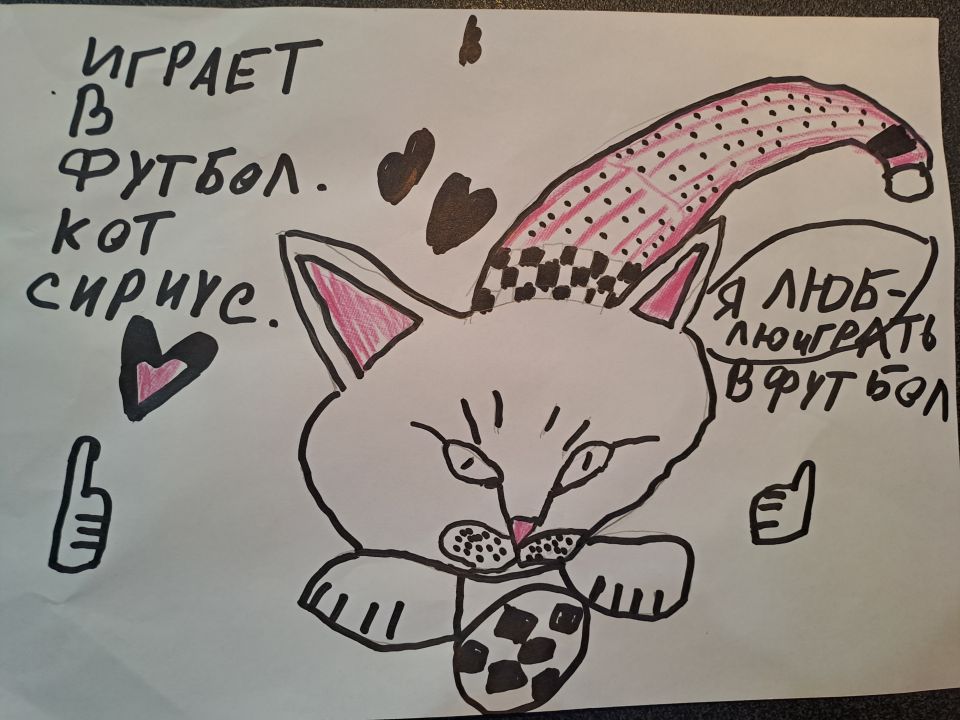 ИГРАЕТ
В
ФУТБОЛ.
КОТ
СИРИУС.
Я ЛЮБ-
ЛЮИГРАТЬ
В ФУТБОЛ